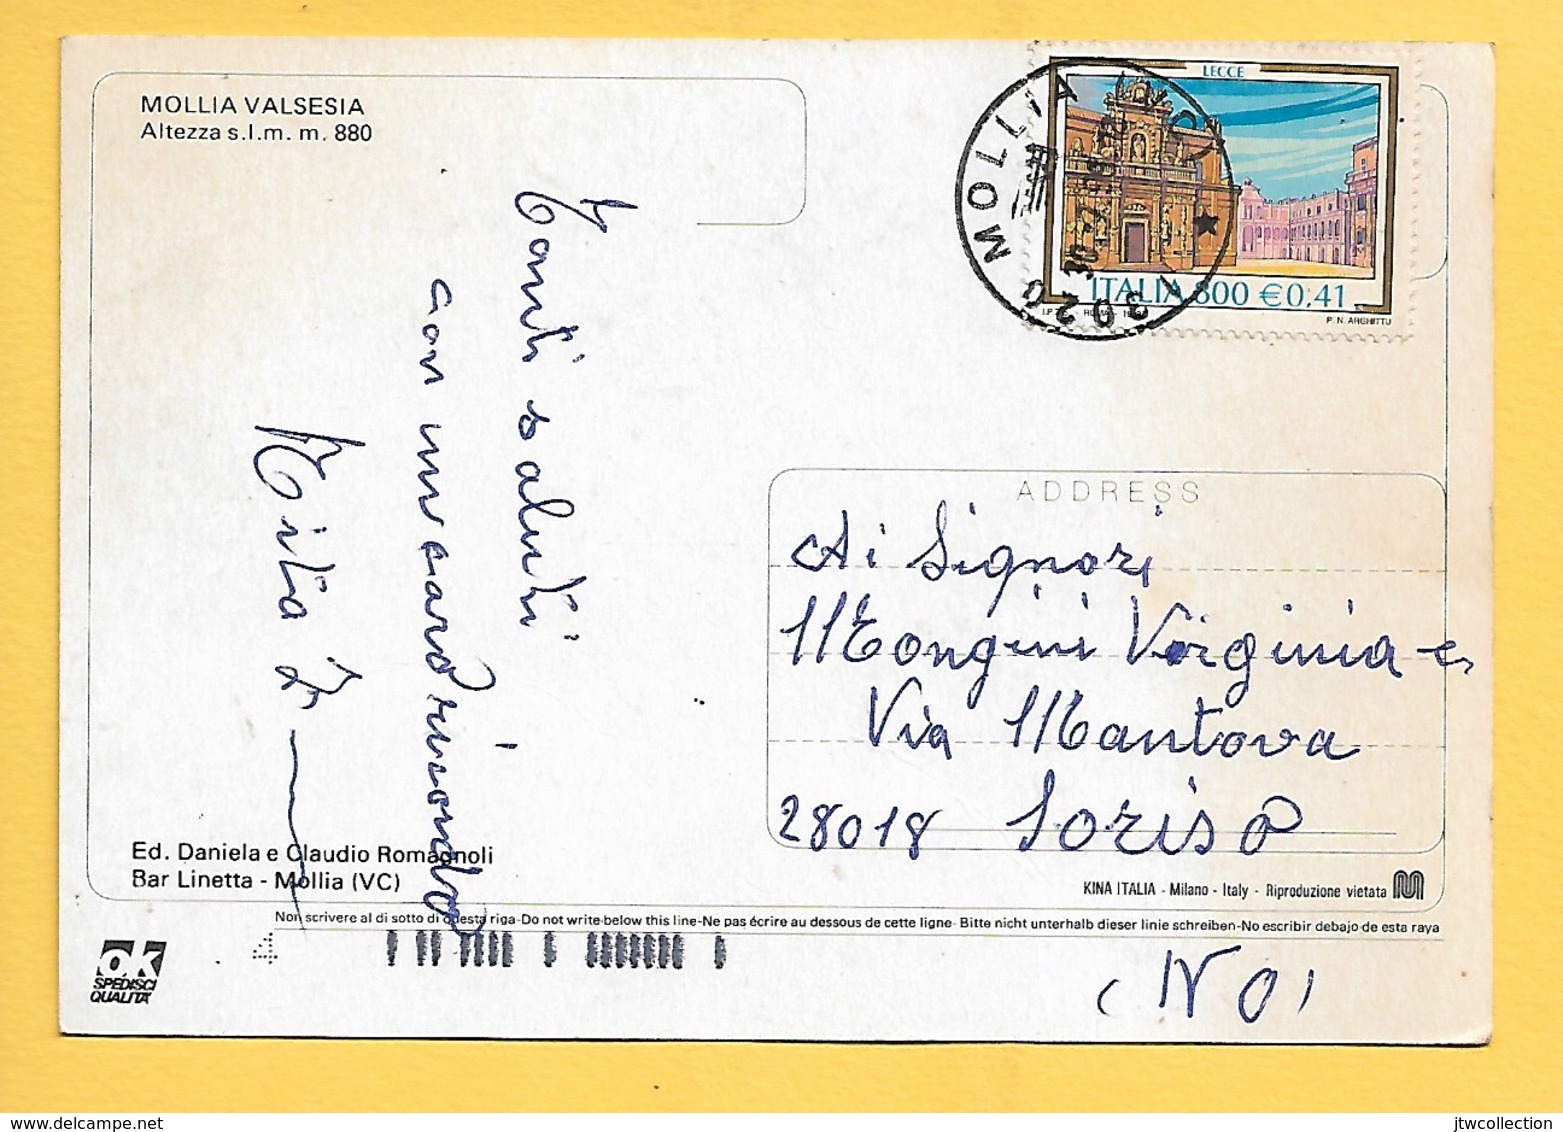 MOLLIA VALSESIA
Altezza s.l.m. m. 880
Tanti saluti
con un caro ricordo
Rita
Ed. Daniela e Claudio Romagnoli
Bar Linetta - Mollia (VC)
LECCE
ITALIA 800 €0,41
ROMA
P. N. ARGHITTU
13020 MOLLIA
30.7
ADDRESS
Ai Signori
Mongini Virginia e
Via Mantova
28018 Soriso
KINA ITALIA - Milano - Italy - Riproduzione vietata
Non scrivere al di sotto di questa riga-Do not write below this line-Ne pas écrire au dessous de cette ligne-Bitte nicht unterhalb dieser linie schreiben-No escribir debajo de esta raya
4
ok
SPEDISCI
QUALITA'
(NO)
jtwcollection